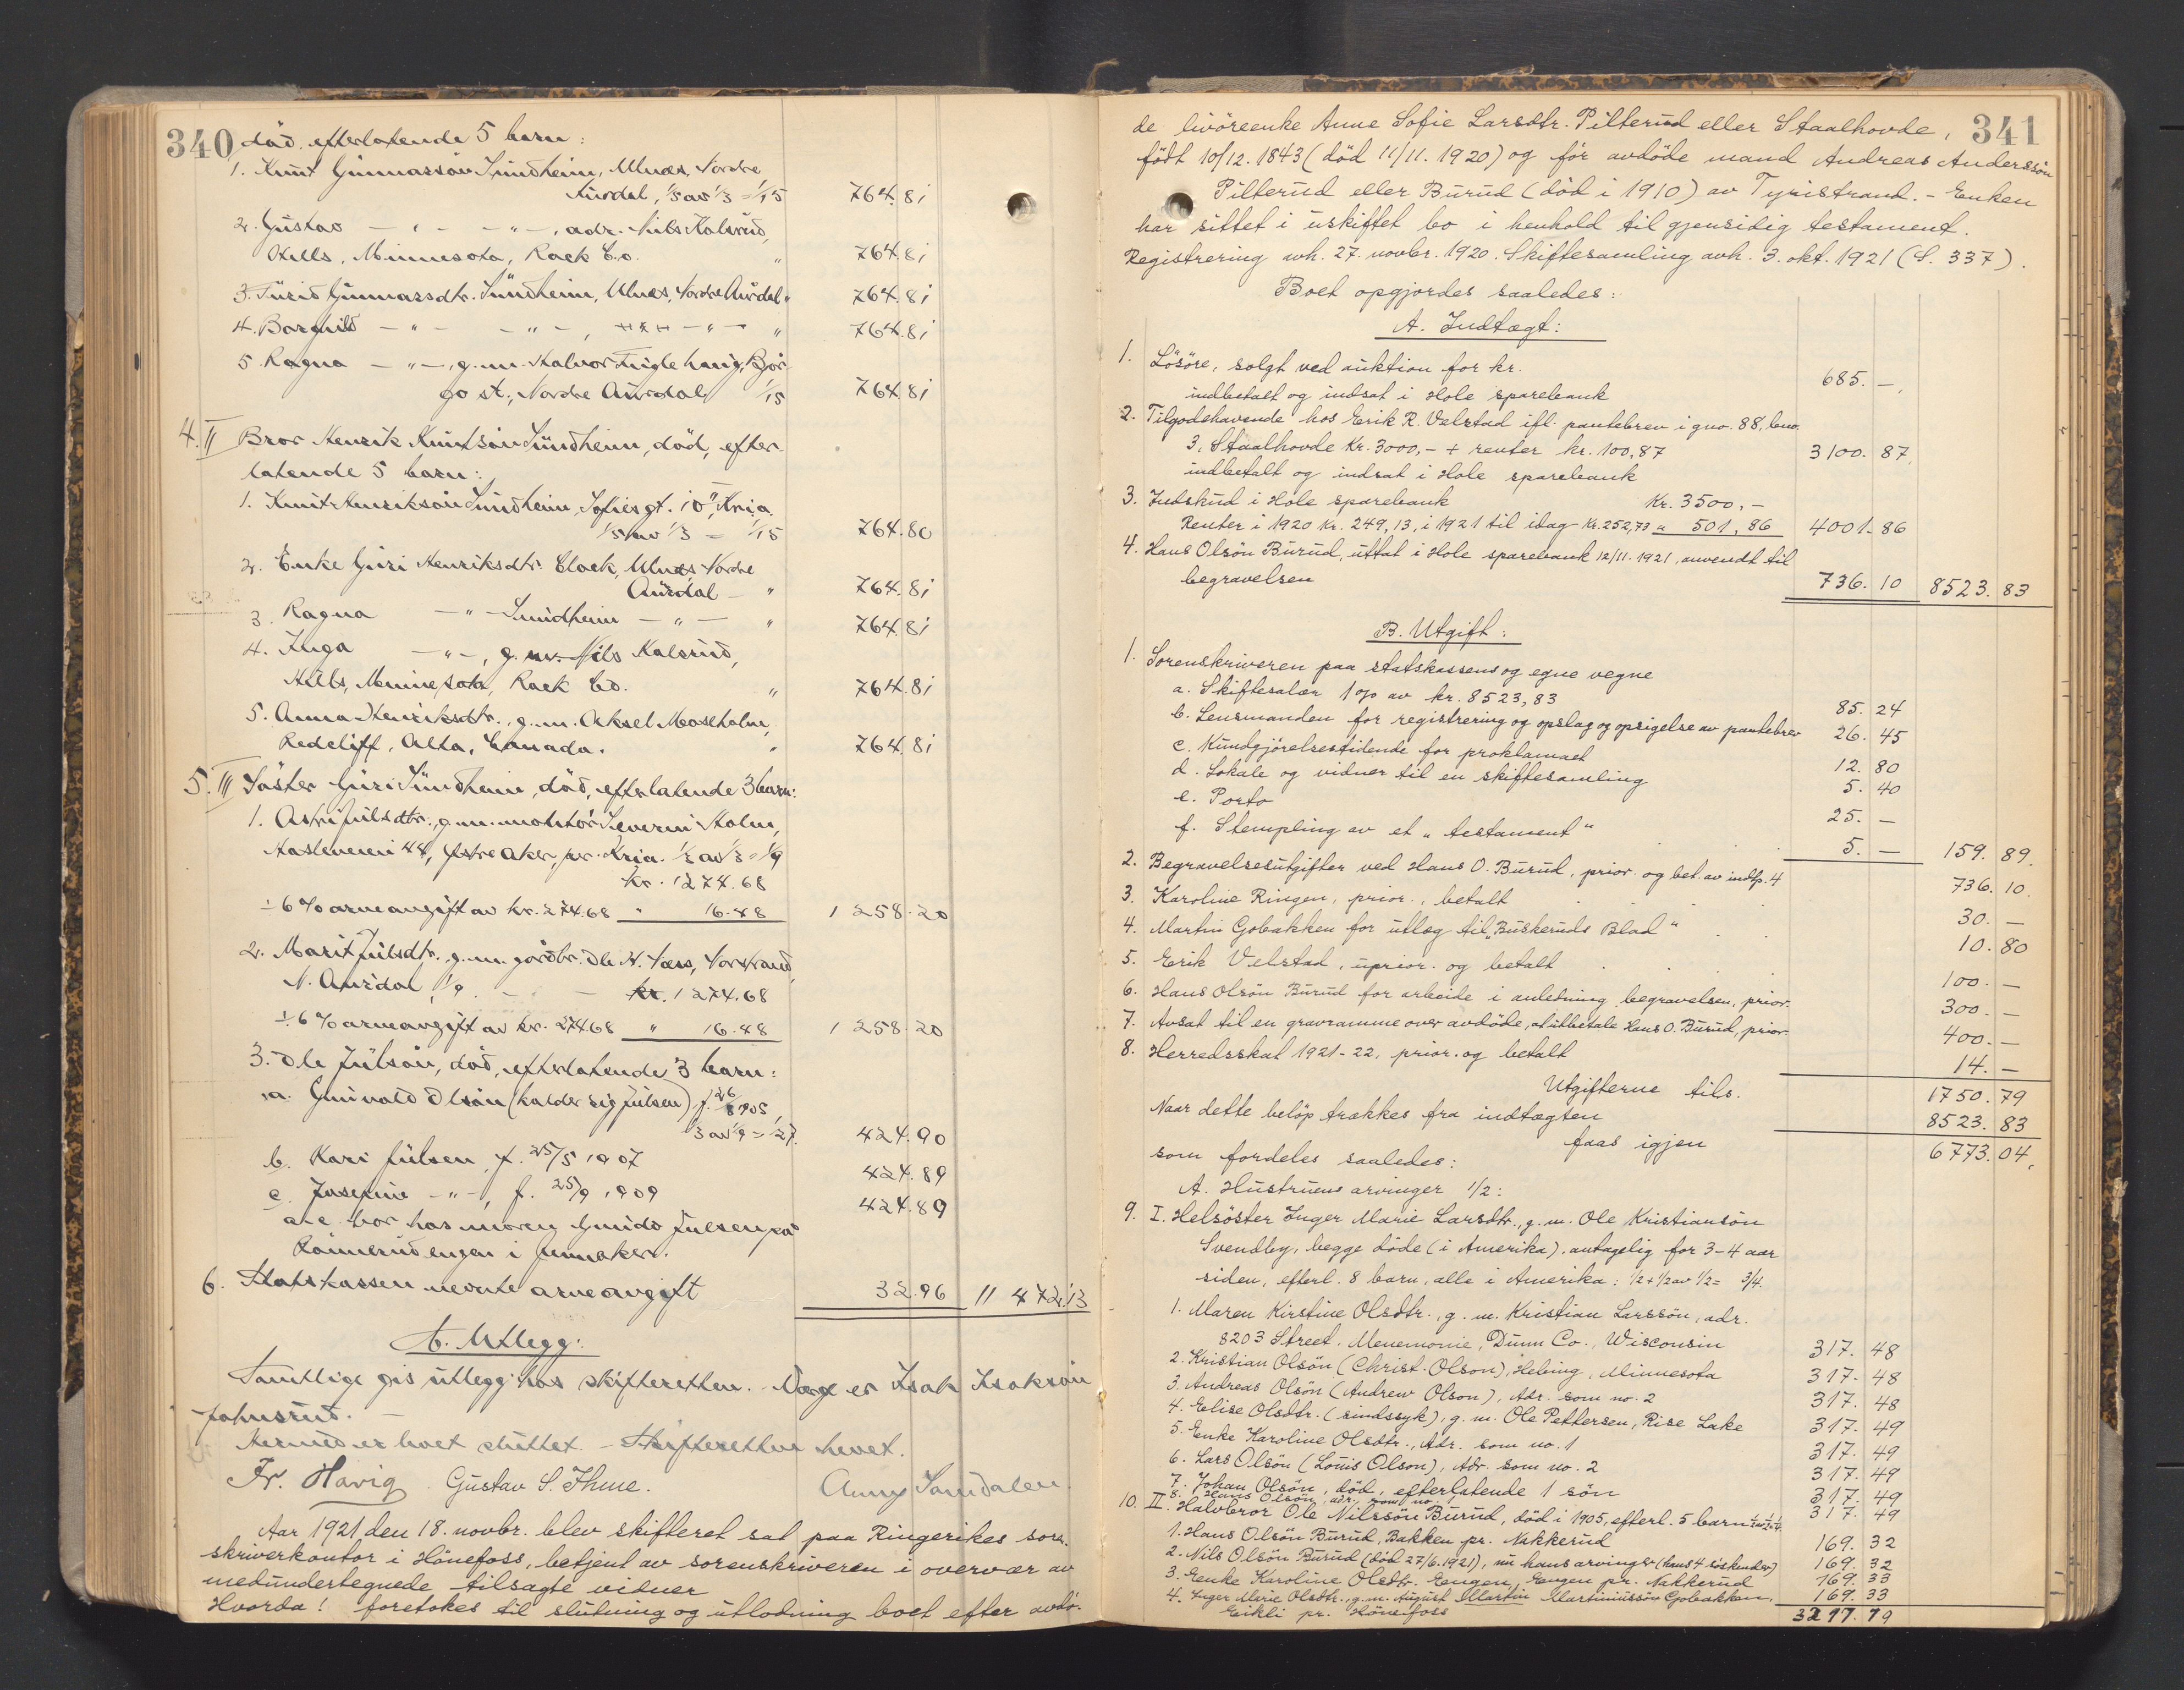 340
død, efterlatende 5 barn:
1. Knut Gunnarssøn Sundheim, Ulnes, Nordre
Aurdal, 1/5 av 1/3 = 1/15 764.81
2. Gustav — " — — " —, adr. Nils Kalsrud,
Hills, Minnesota, Rock Co. " 764.81
3. Turid Gunnarsdtr. Sundheim, Ulnes, Nordre Aurdal " 764.81
4. Borghild — " — — " —, — " — " 764.81
5. Ragna — " —, g.m. Halvor Fuglehaug, Bjør-
go st., Nordre Aurdal 1/15 764.81
4. II Bror Henrik Knutsøn Sundheim, død, efter-
latende 5 barn:
1. Knut Henriksøn Sundheim, Sofies gt. 10II, Kr.ia.
1/5 av 1/3 = 1/15 764.80
2. Enke Guri Henriksdtr. Block, Ulnes, Nordre
Aurdal — " 764.81
3. Ragna — " — Sundheim — " — " 764.81
4. Inga — " —, g.m. Nils Kalsrud,
Hills, Minnesota, Rock Co. " 764.81
5. Anna Henriksdtr., g.m. Aksel Moseholm,
Redcliff, Alta, Canada. " 764.81
5. III Søster Guri Sundheim, død, efterlatende 3 barn:
1. Astri Julsdtr., g.m. montør Severin Holm,
Hasleveien 44, Østre Aker, pr. Kria. 1/3 av 1/3 = 1/9
kr. 1274.68
÷ 6 % arveavgift av kr. 274.68 " 16.48 1 258.20
2. Marit Julsdtr. g.m. gårdbr. Ole N. Næss, Norstrand,
N. Aurdal, 1/9 — — kr. 1274.68
÷ 6 % arveavgift av kr. 274.68 " 16.48 1 258.20
3. Ole Julsøn, død, efterlatende 3 barn:
a. Gunvald Olsøn (kalder sig Julsen) f. 26/8 1905,
1/3 av 1/9 = 1/27. 424.90
b. Kari Julsen, f. 25/5 1907 424.89
c. Josefine — " —, f. 25/9 1909 424.89
a-c bor hos moren Gunda Julsen på
i Jevnaker.
6. Statskassen nevnte arveavgift 32.96 11 472.13
C. Utlegg:
Samtlige gis utlegg hos skifteretten. Verge er Isak Isaksøn
Johnsrud. —
Hermed er boet sluttet. — Skifteretten hevet.
Fr. Havig Gustav S. Thme. Anny Samdalen.
Aar 1921 den 18. novbr. blev skifteret sat paa Ringerikes soren-
skriverkontor i Hönefoss, betjent av sorenskriveren i overvær av
medundertegnede tilsagte vidner
Hvorda! foretokes til slutning og utlodning boet efter avdø-
341
de livöreenke Anne Sofie Larsdtr. Pilterud eller Staalhovde,
födt 10/12. 1843 (död 11/11. 1920) og för avdöde mand Andreas Anderssön
Pilterud eller Burud (död i 1910) av Tyristrand. - Enken
har sittet i uskiftet bo i henhold til gjensidig testament.
Registrering avh. 27. novbr. 1920. Skiftesamling avh. 3. okt. 1921 (S. 337).
Boet opgjordes saaledes:
A. Indtægt:
1. Lösöre, solgt ved auktion for kr.
indbetalt og indsat i Hole sparebank 685. —
2. Tilgodehavende hos Erik R. Velstad ifl. pantebrev i gno. 88, bno.
3, Staalhovde Kr. 3000,- + renter kr. 100,87 3100. 87
indbetalt og indsat i Hole sparebank
3. Indskud i Hole sparebank Kr. 3500,-
Renter i 1920 Kr. 249,13, i 1921 til idag Kr. 252,73 " 501,86 4001. 86
4. Hans Olsön Burud, uttat i Hole sparebank 12/11. 1921, anvendt til
begravelsen 736. 10 8523. 83
B. Utgift:
1. Sorenskriveren paa statskassens og egne vegne
a. Skiftesalær 1 % av kr. 8523,83 85. 24
b. Lensmanden for registrering og opslag og opsigelse av pantebrev 26. 45
c. Kundgjörelsestidende for proklamaet 12. 80
d. Lokale og vidner til en skiftesamling 5. 40
e. Porto 25. —
f. Stempling av et "testament" 5. — 159. 89.
2. Begravelsesutgifter ved Hans O. Burud, prior. og bet. av indtp. 4 736. 10.
3. Karoline Ringen, prior., betalt 30. —
4. Martin Gobakken for utlæg til "Buskeruds Blad" 10. 80
5. Erik Velstad, uprior. og betalt 100. —
6. Hans Olsön Burud for arbeide i anledning begravelsen, prior. 300. —
7. Avsat til en gravramme over avdöde, at utbetale Hans O. Burud, prior. 400. —
8. Herredsskat 1921-22, prior. og betalt 14. —
Utgifterne tils. 1750. 79
Naar dette belöp trækkes fra indtægten 8523. 83
faas igjen 6773. 04,
som fordeles saaledes:
A. Hustruens arvinger 1/2:
9. I. Helsöster Inger Marie Larsdtr., g.m. Ole Kristiansön
Svendby, begge döde (i Amerika), antagelig for 3-4 aar
siden, efterl. 8 barn, alle i Amerika: 1/2 + 1/2 av 1/2 = 3/4.
1. Maren Kirstine Olsdtr., g. m. Kristian Larssön, adr.
8203 Street, Menemonie, Dunn Co., Wisconsin 317. 48
2. Kristian Olsön (Christ. Olson), Hebing, Minnesota 317. 48
3. Andreas Olsön (Andrew Olson), Adr. som no. 2 317. 48
4. Elise Olsdtr. (sindssyk), g. m. Ole Pettersen, Rise Lake 317. 49
5. Enke Karoline Olsdtr., Adr. som no. 1 317. 49
6. Lars Olsön (Louis Olson), Adr. som no. 2 317. 49
7. Johan Olsön, död, efterlatende 1 sön 317. 49
8. Hans Olsön, adr. som no. 1 317. 49
10. II. Halvbror Ole Nilssön Burud, död i 1905, efterl. 5 barn
1. Hans Olsön Burud, Bakken pr. Nakkerud 169. 32
2. Nils Olsön Burud (död 27/6. 1921), nu hans arvinger (hans 4 söskender) 169. 32
3. Enke Karoline Olsdtr. Engen, Engen pr. Nakkerud 169. 33
4. Inger Marie Olsdtr., g.m. August Martin Martiniussön Gobakken, 169. 33
Eikli pr. Hönefoss 3217. 19